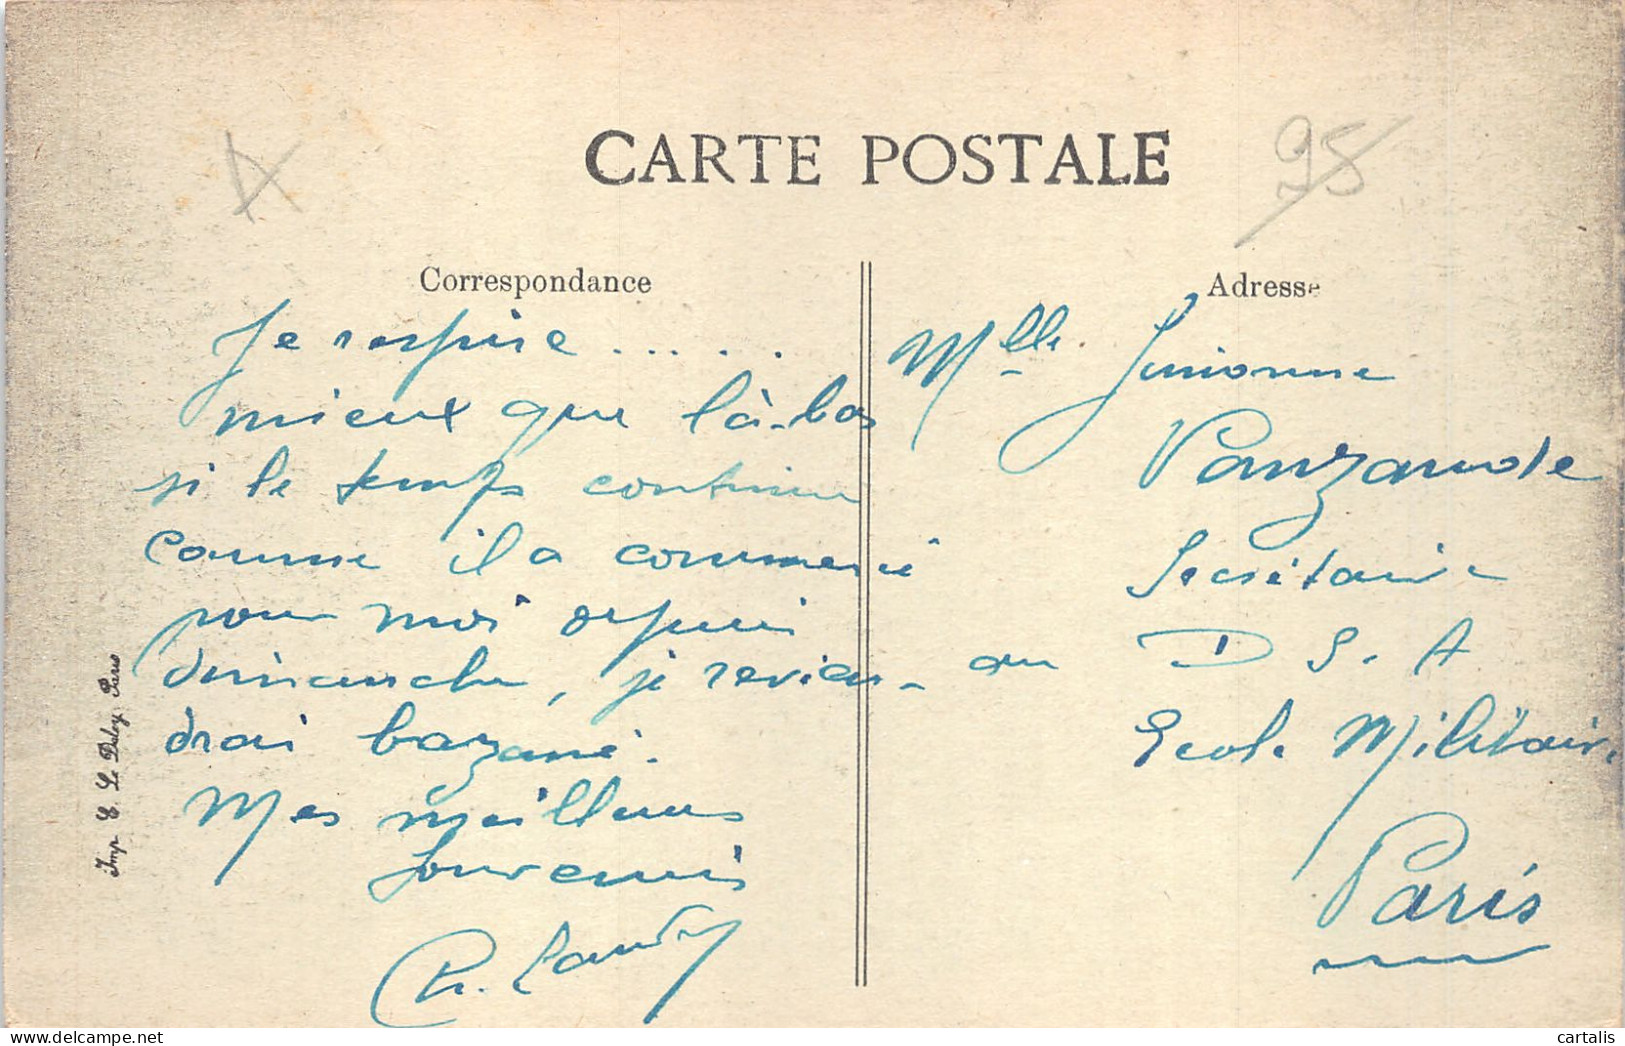 CARTE POSTALE
95
Correspondance
Je respire .....
mieux que là-bas
si le temps continue
comme il a commencé
pour moi depuis
dimanche, je revien-
drai bazané.
Mes meilleurs
souvenirs
Ch. Landry
Adresse
Mlle
Secrétaire
au D S. A
Ecole Militaire
Paris
Imp. E. Le Deley, Paris
cartalis